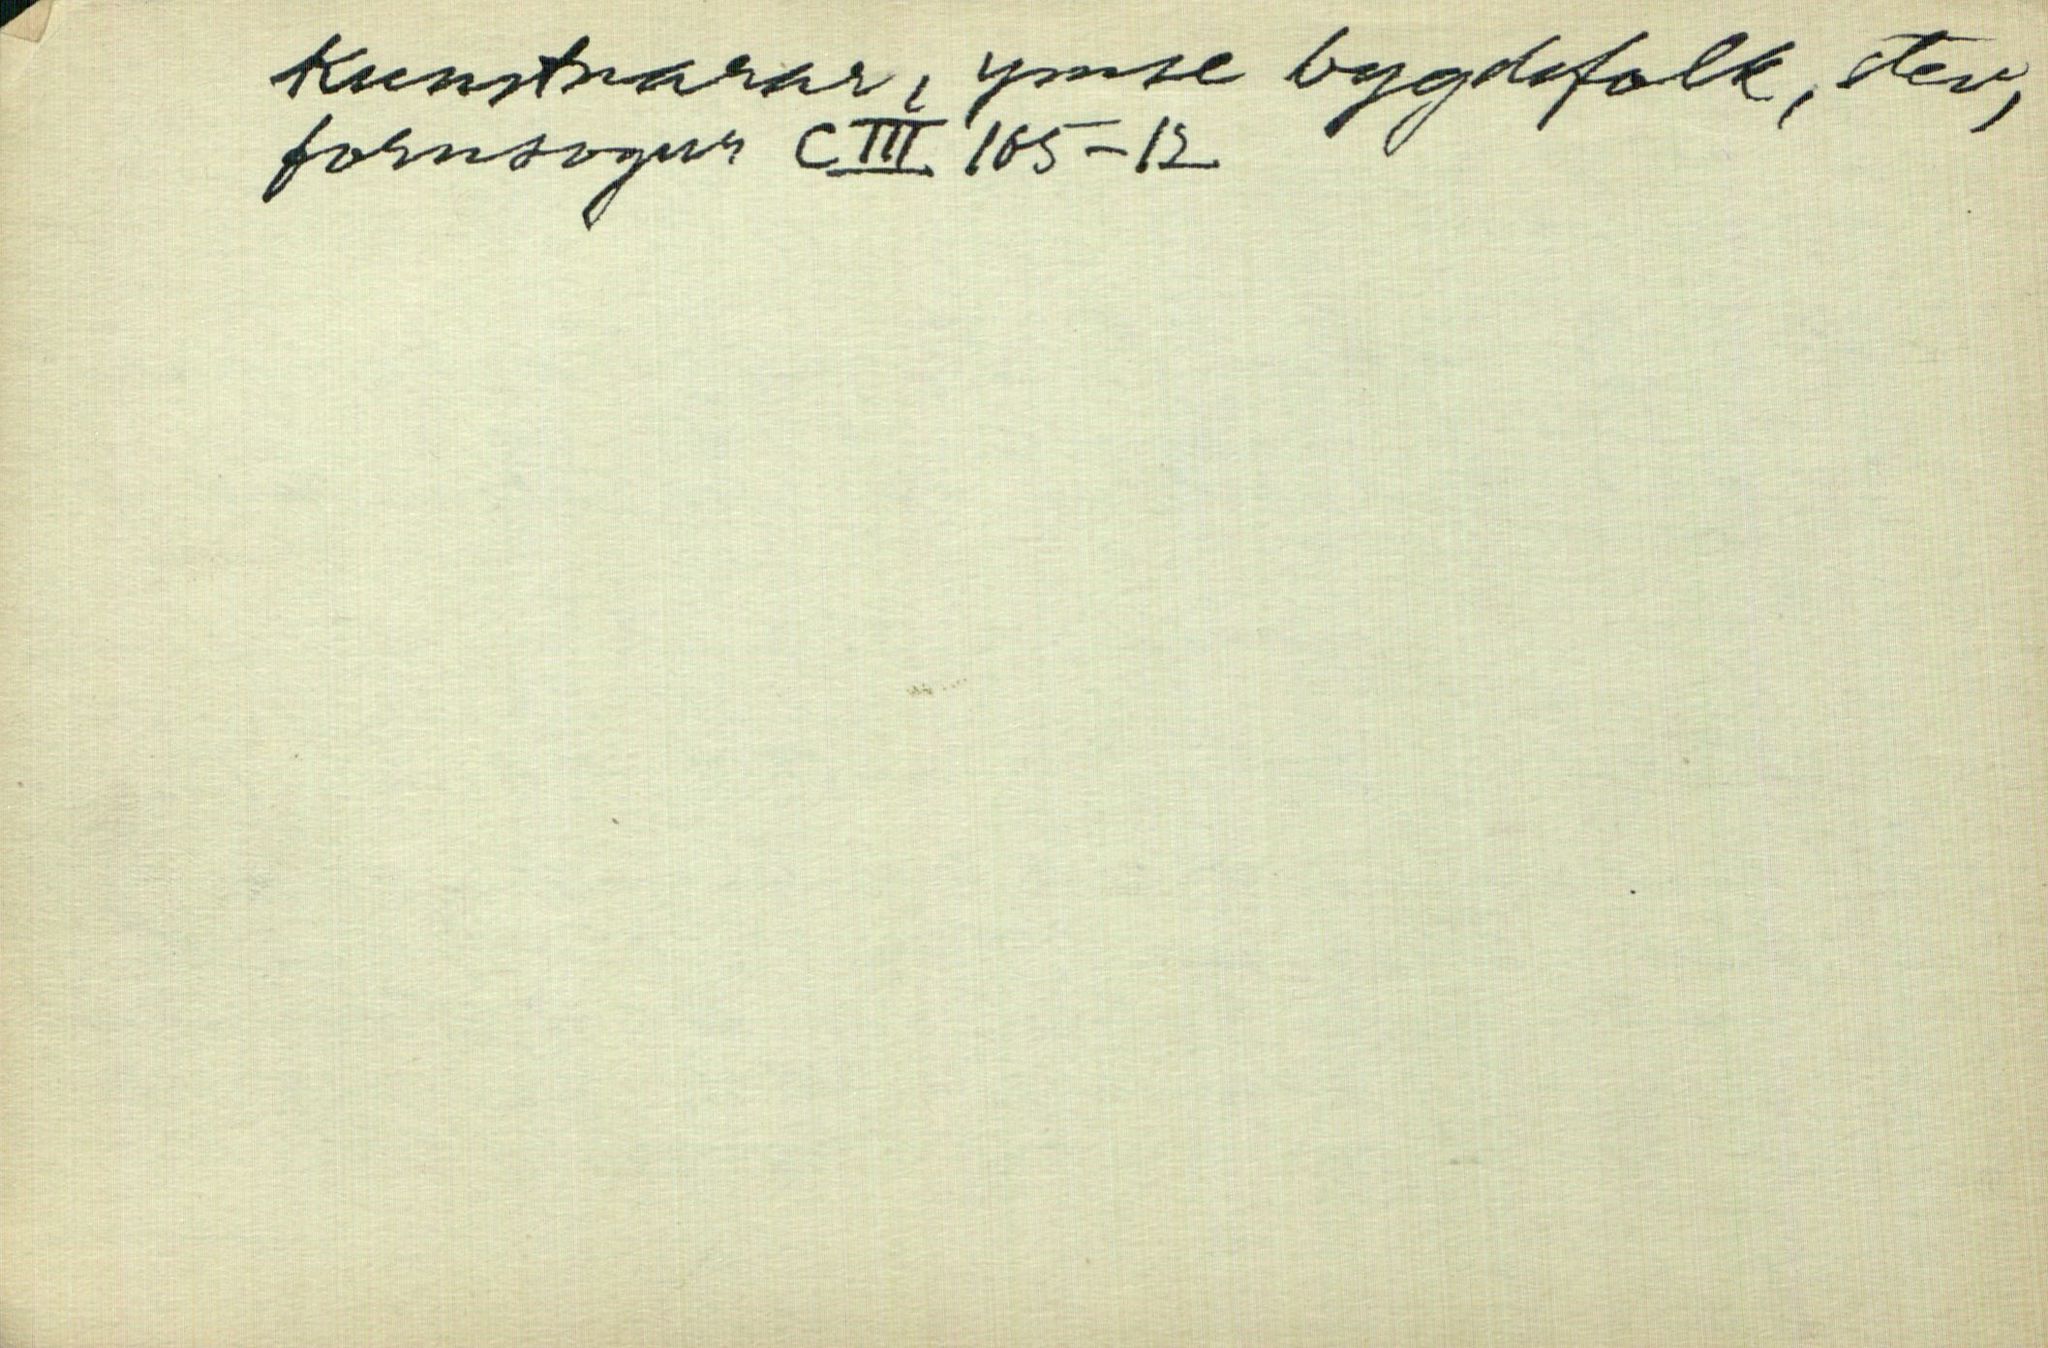 Kunstnarar, ymse bygdefolk, stev,
fornsogur C III 165-12